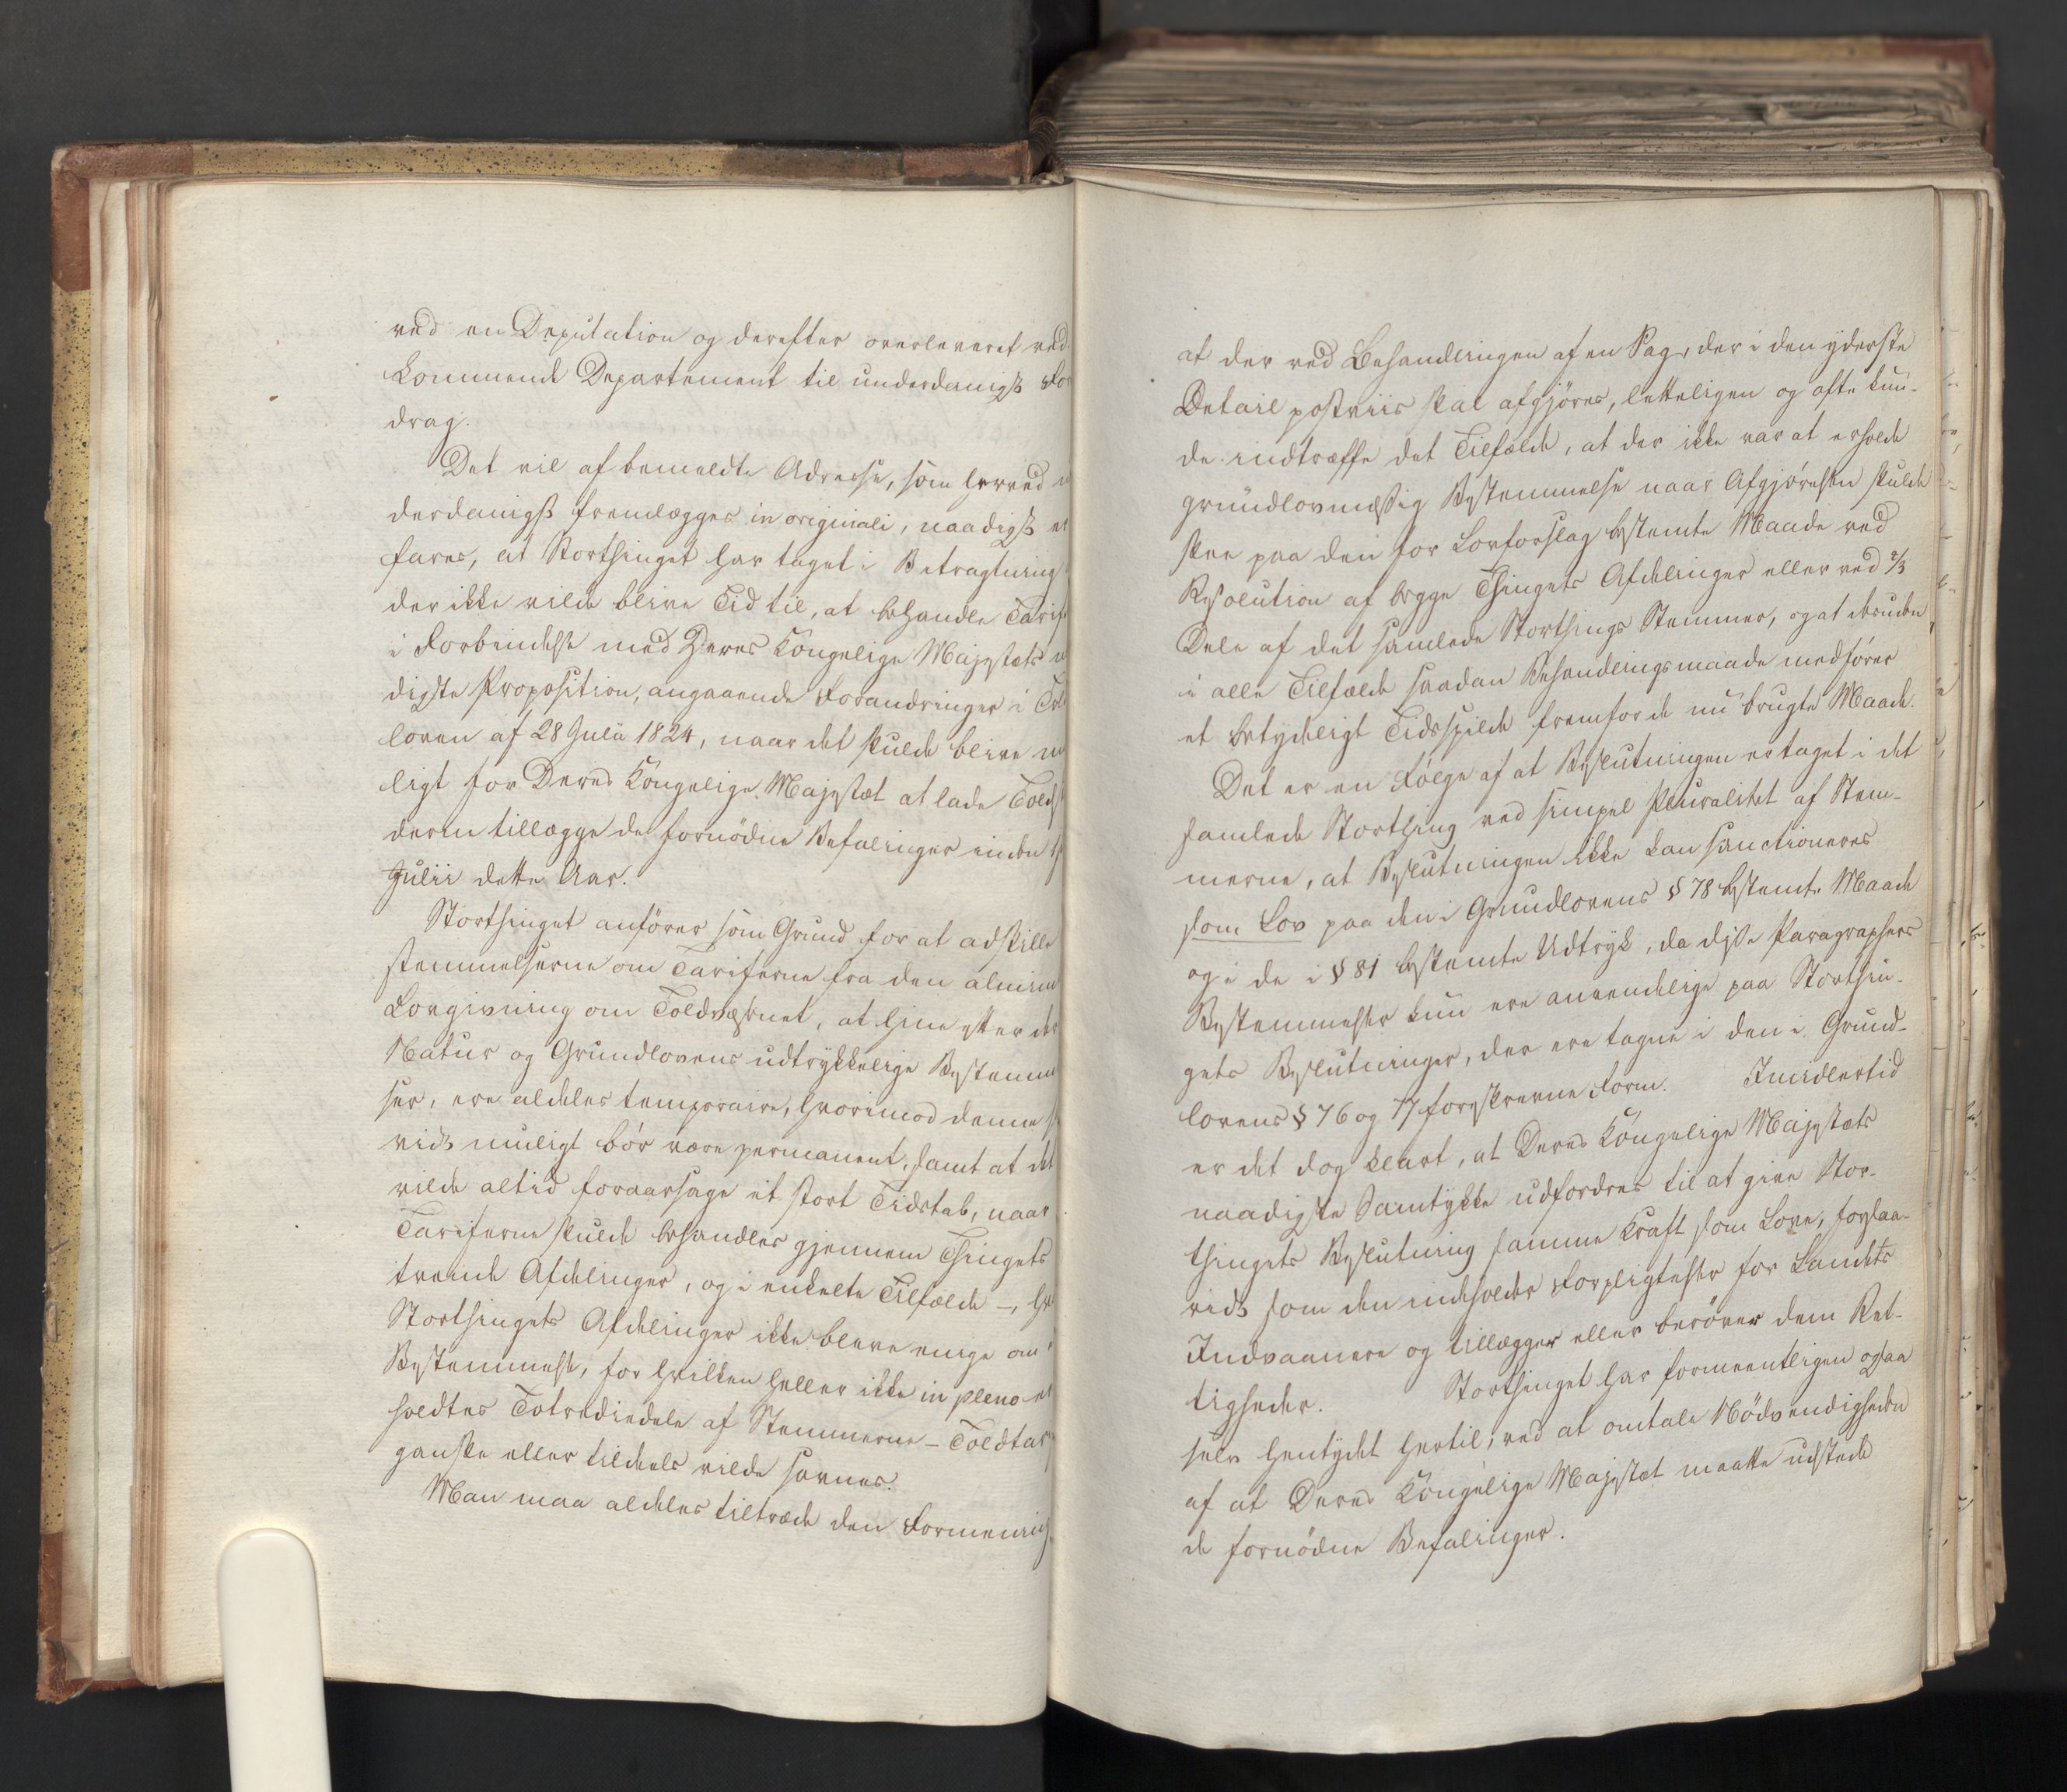 ved en Deputation og derefter overleveret ved-
kommende Departement til underdanigst For
drag.
Det vil af bemeldte Adresse, som herved
derdanigst fremlægges in originali, naadigst er
fares, at Storthinget har taget i Betragtning
der ikke vilde blive Tid til, at behandle Tarif
i Forbindelse med Deres Kongelige Majestæts
digste Proposition, angaaende Forandringer i Told
loven af 28 Julii 1824, naar det skulde blive mu
ligt for Deres Kongelige Majestæt at lade Told
derin tillægge de fornødne Befalinger inden
Julii dette Aar.
Storthinget anfører som Grund for at adskille
stemmelserne om Tarifferne fra den almin
Lovgivning om Toldvæsenet, at hine efter der
Natur og Grundlovens udtrykkelige Bestemm
ser, ere aldeles temporaire, hvorimod denne
vidt muligt bør være permanent, samt at det
vilde altid foraarsage et stort Tidstab, naar
Tarifferne skulde behandles gjennem Thingets
tvende Afdelinger, og i enkelte Tilfælde –, hv
Storthingets Afdelinger ikke bleve enige om
Bestemmelse, for hvilken heller ikke in pleno er
holdtes Totrediedele af Stemmerne – Toldtar
ganske eller tildeels vilde savnes.
Man maa aldeles tiltræde den Formening,
at der ved Behandlingen af en Sag, der i den yderste
Detail postviis skal afgjøres, letteligen og ofte kun-
de indtræffe det Tilfælde, at der ikke var at erholde
grundlovmæssig Bestemmelse naar Afgjørelsen skulde
skee paa den for Lovforslag bestemte Maade ved
Resolution af begge Thingets Afdelinger eller ved 2/3
Dele af det samlede Storthings Stemmer, og at desuden
i alle Tilfælde saadan Behandlingsmaade medfører
et betydeligt Tidsspilde fremfor de nu brugte Maade.
Det er en Følge af at Beslutningen er taget i det
samlede Storthing ved simpel Pluralitet af Stem-
merne, at Beslutningen ikke kan sanctioneres
som Lov paa den i Grundlovens § 78 bestemte Maade
og i de i § 81 bestemte Udtryk, da disse Paragraphers
Bestemmelser kun ere anvendelige paa Storthin-
gets Beslutninger, der ere tagne i den i Grund-
lovens § 76 og 77 foreskrevne Form. Imidlertid
er det dog klart, at Deres Kongelige Majestæts
naadigste Samtykke udfordres til at give Stor-
thingets Beslutning samme Kraft som Love, forsaa-
vidt som den indeholder Forpligtelser for Landets
Indvaanere og tillægger eller berøver dem Ret-
tigheder. Storthinget har formeentligen ogsaa
selv hentydet hertil, ved at omtale Nødvendigheden
af at Deres Kongelige Majestæt maatte udstede
de fornødne Befalinger.